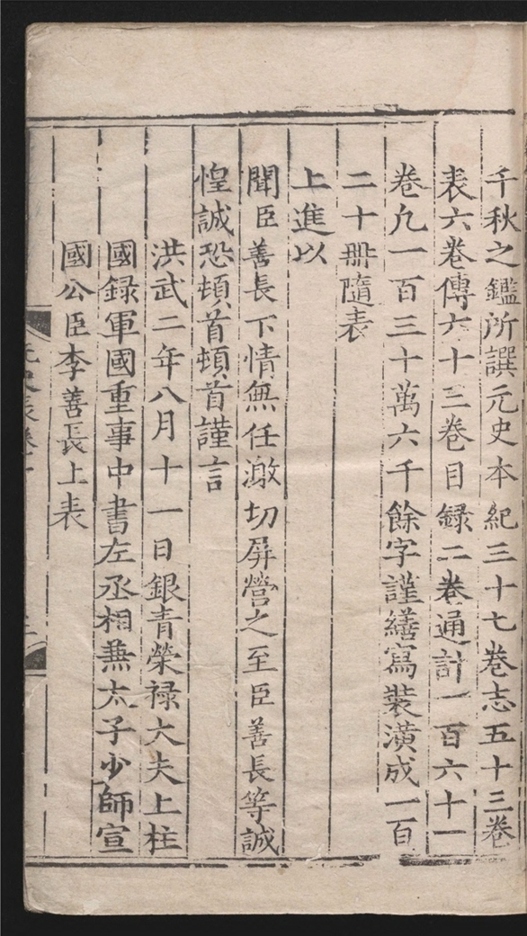 千秋之鑑所譔元史本紀三十七卷志五十三卷
表六卷傳六十三卷目録二卷通計一百六十一
卷凢一百三十萬六千餘字謹繕寫裝潢成一百
二十冊隨表
上進以
聞臣善長下情無任激切屏營之至臣善長等誠
惶誠恐頓首頓首謹言
洪武二年八月十一日銀青榮禄大夫上柱
國録軍國重事中書左丞相兼太子少師宣
國公臣李善長上表